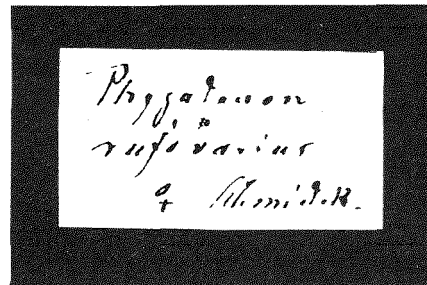 Phygadeuon
rufovarius
♀ Schmiedek.